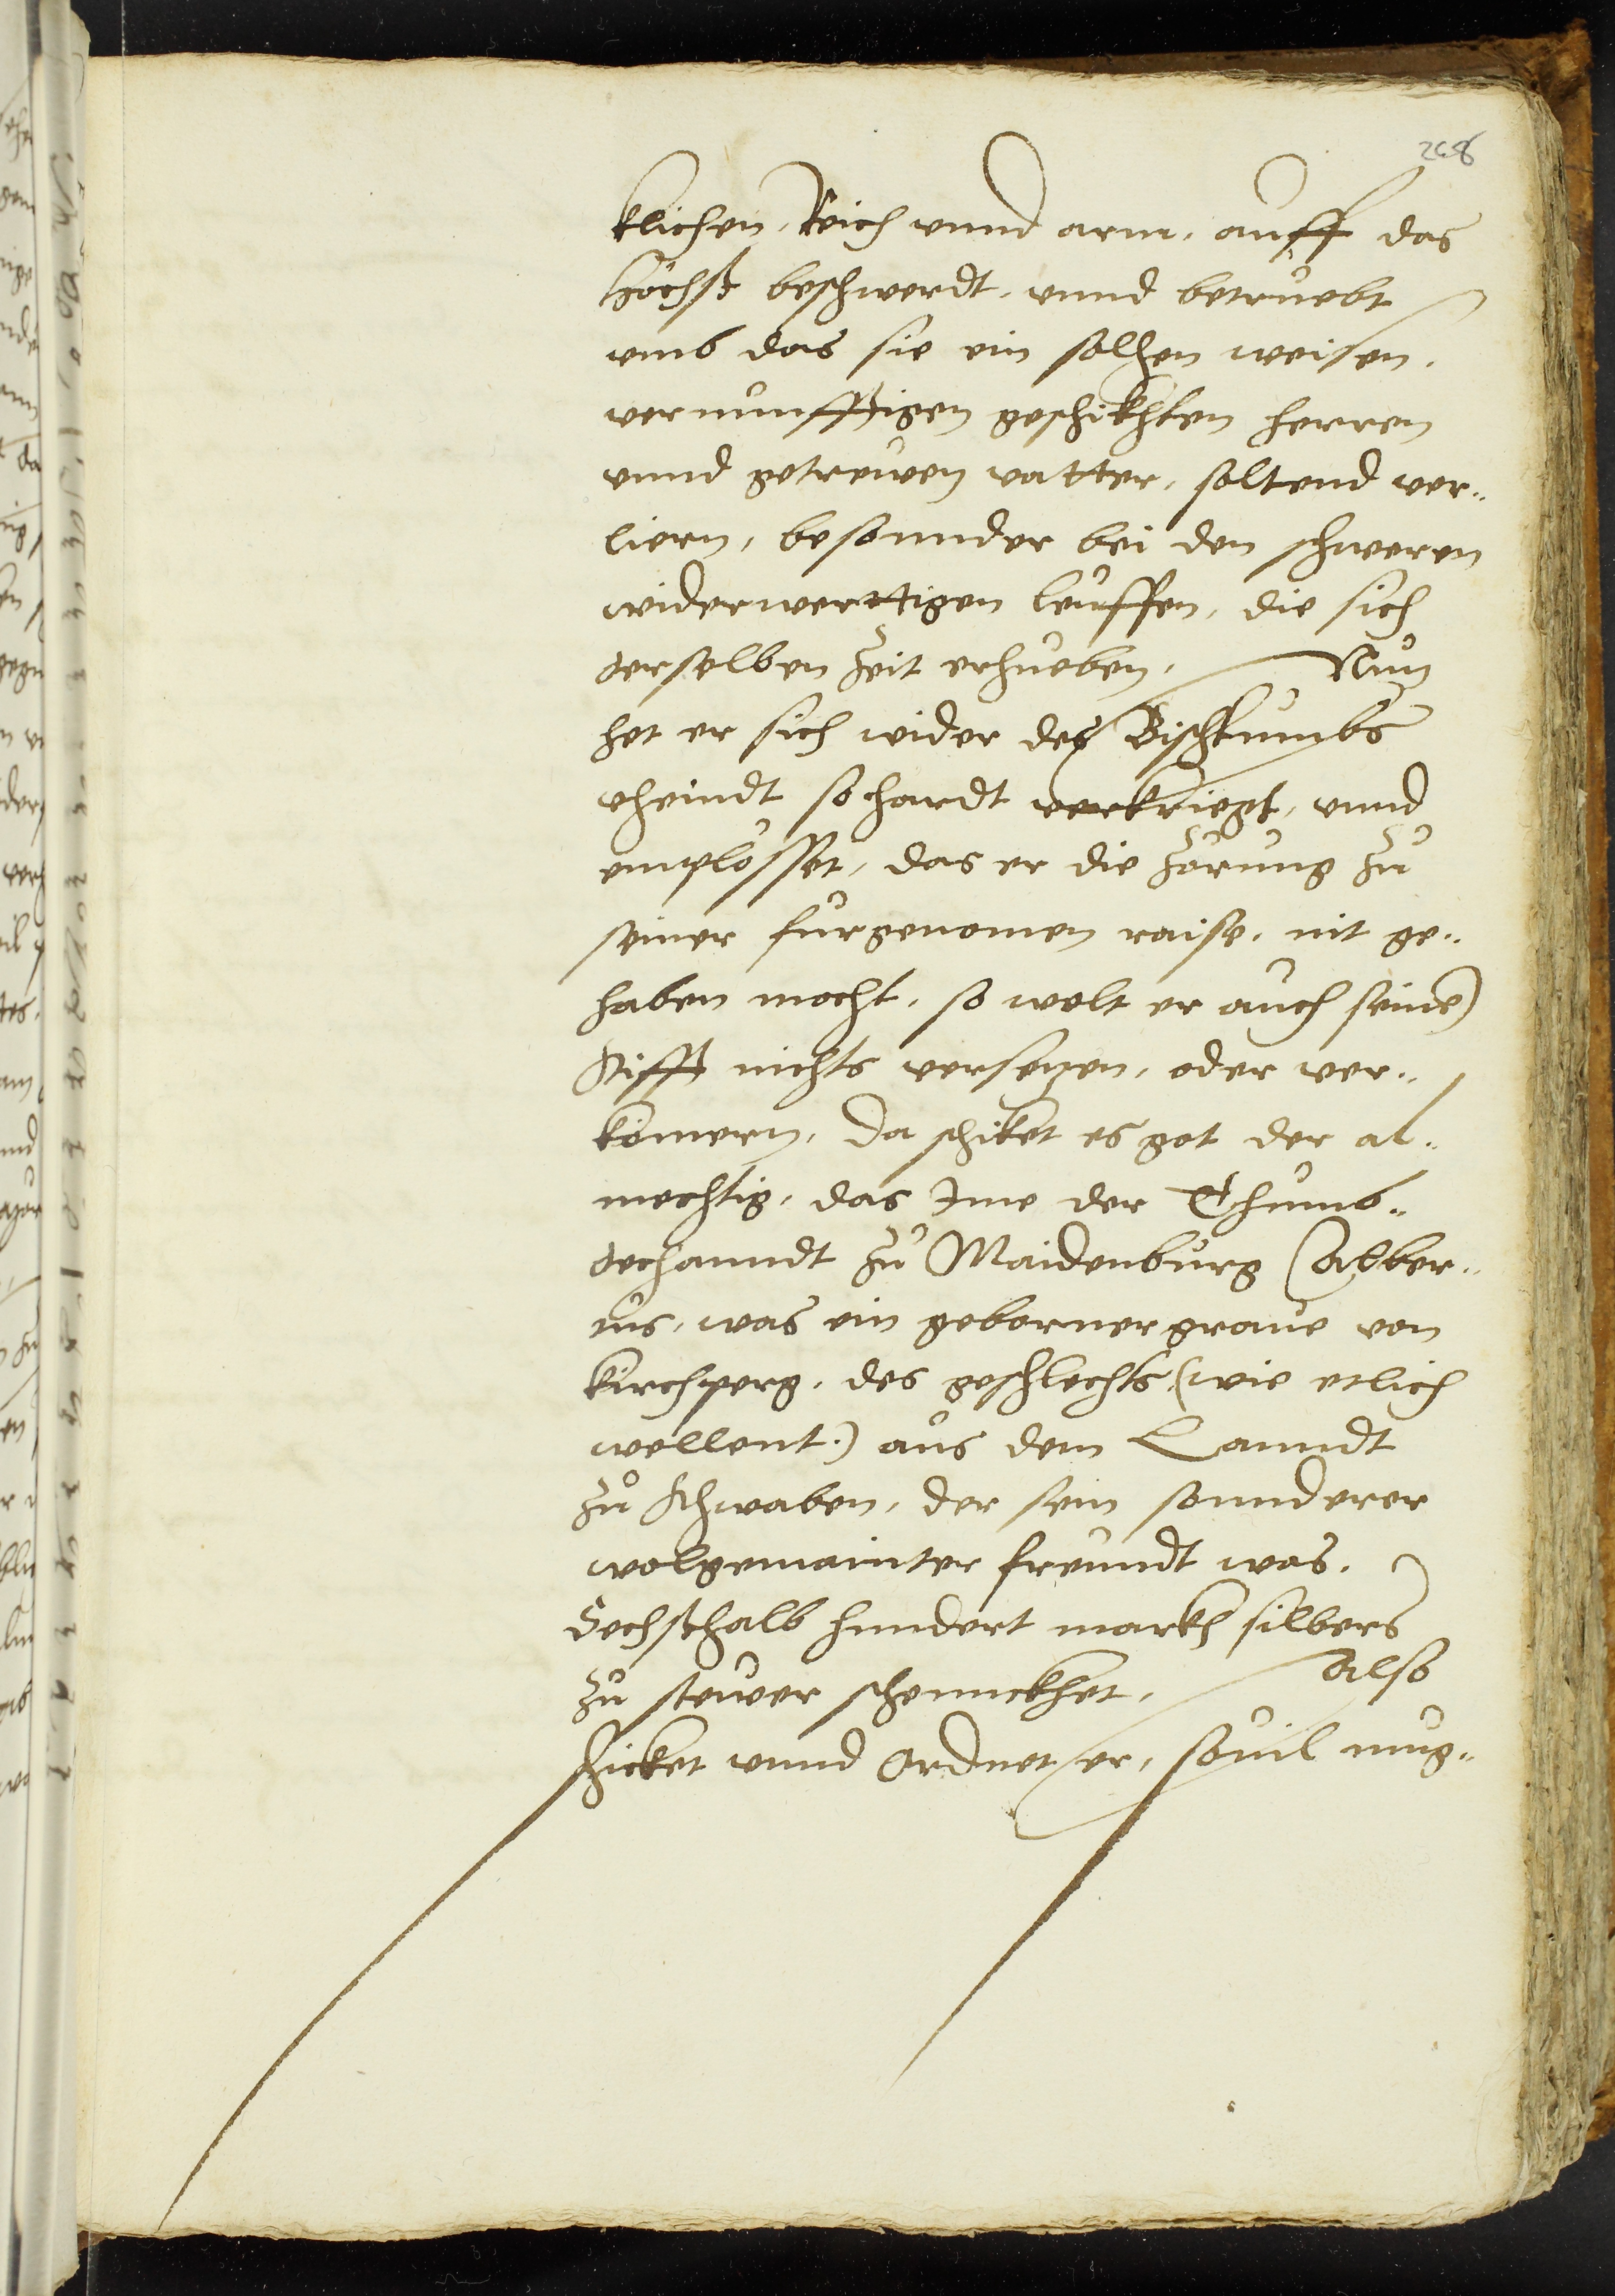 268
klichen, Reich vnnd arm, auff das
höchst beschwerdt, vnnd betruebt
vmb das sie ein solhen weisen,
vernunfftigen geschikhten herren
vnnd getrewen vatter, soltend ver¬
liern, besonnder bei den schweren
widerwerttigen leuffen, die sich
derselben zeit erhueben, Nun
het er sich wider des Bischtumbs
vheindt so hardt verkriegt, vnnd
emplösset, das er die zörung zu
seiner furgenomen raise, nit ge¬
haben mocht, so wolt er auch seine
Stifft nichts versetzen, oder ver¬
kömern, da schiket es got der al¬
mechtig, das Ime der Thumb¬
dechanndt zu Maidenburg (Alber¬
tus, was ein geborner graue von
kirchperg, des geschlechts (wie etlich
wellent:) aus dem Lanndt
zu Schwaben, der sein sonnderer
wolgemainter freundt was,
Sechsthalb hundert markh silbers
zu stewer schennckhet, Also
schicket vnnd Ordnet er, souil mug¬